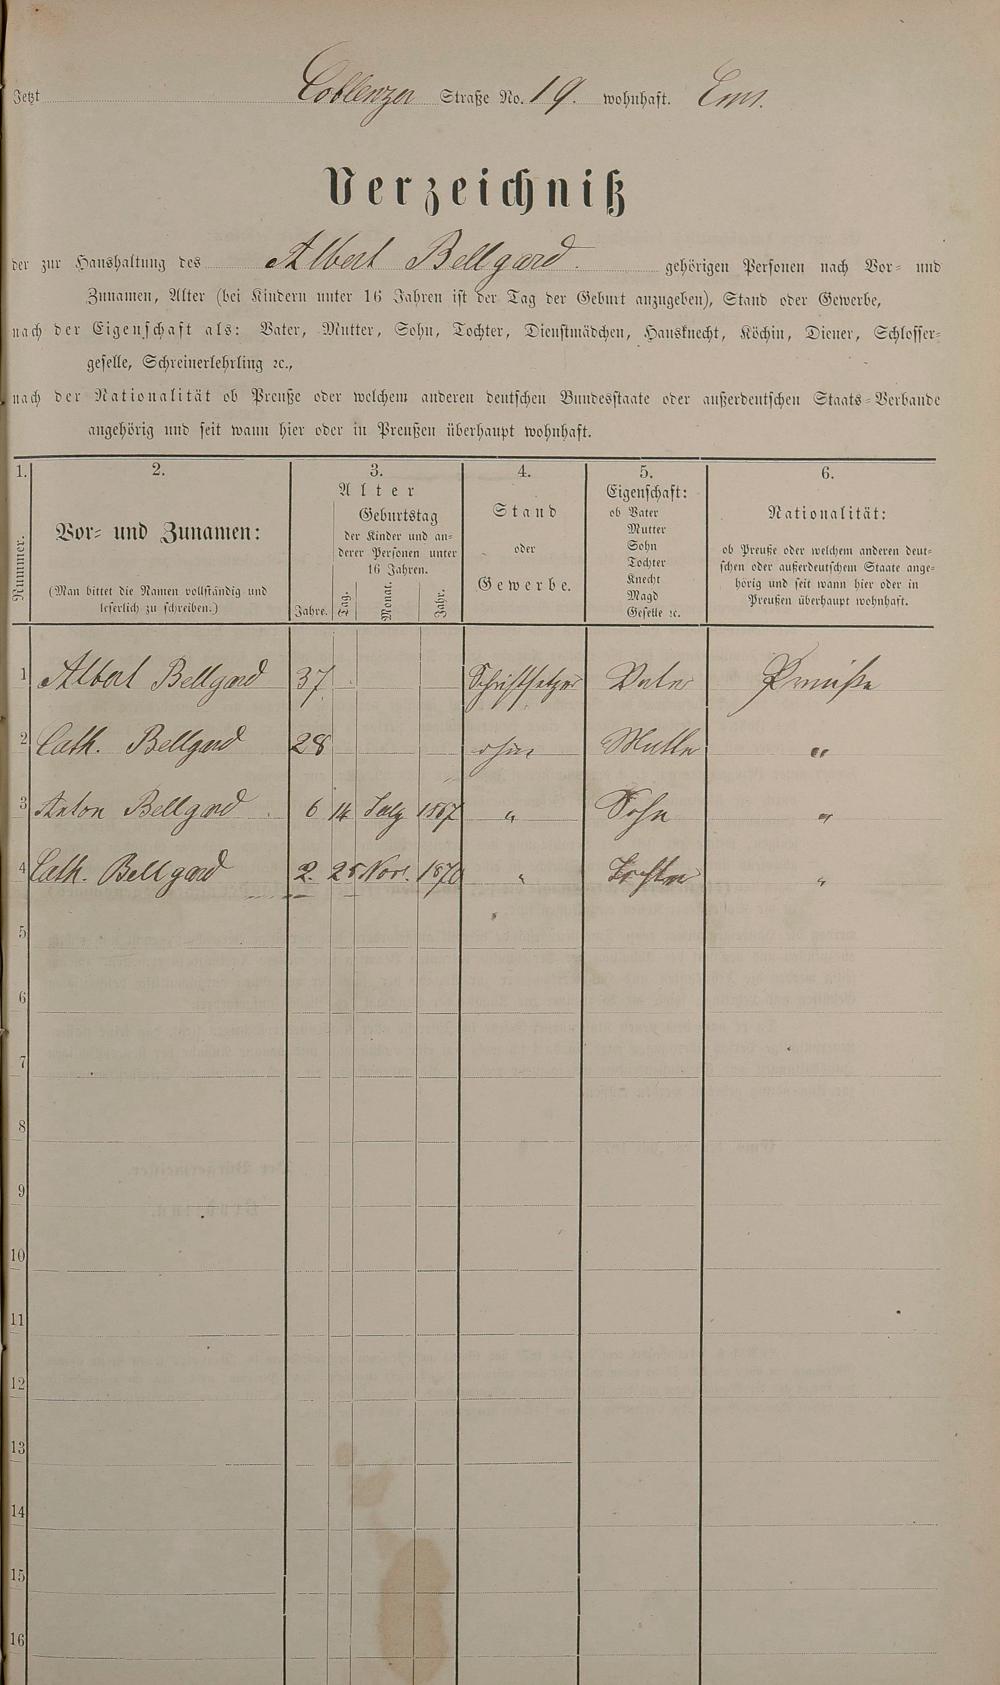 Jetzt Coblenzer Straße No. 19. wohnhaft. Ems.
Verzeichniß
der zur Haushaltung des Albert Bellgard. gehörigen Personen nach Vor- und
Zunamen, Alter (bei Kindern unter 16 Jahren ist der Tag der Geburt anzugeben), Stand oder Gewerbe,
nach der Eigenschaft als: Vater, Mutter, Sohn, Tochter, Dienstmädchen, Hausknecht, Köchin, Diener, Schlosser-
geselle, Schreinerlehrling ꝛc.,
nach der Nationalität ob Preuße oder welchem anderen deutschen Bundesstaate oder außerdeutschen Staats-Verbande
angehörig und seit wann hier oder in Preußen überhaupt wohnhaft.
1.
Nummer.
2.
Vor- und Zunamen:
(Man bittet die Namen vollständig und
leserlich zu schreiben.)
3.
Alter
Jahre.
Geburtstag
der Kinder und an-
derer Personen unter
16 Jahren.
Tag.
Monat.
Jahr.
4.
Stand
oder
Gewerbe.
5.
Eigenschaft:
ob Vater
Mutter
Sohn
Tochter
Knecht
Magd
Geselle ꝛc.
6.
Nationalität:
ob Preuße oder welchem anderen deut-
schen oder außerdeutschem Staate ange-
hörig und seit wann hier oder in
Preußen überhaupt wohnhaft.
1 Albert Bellgard 37 Schriftsetzer Vater Preuße
2 Cath. Bellgard 28 ohne Mutter "
3 Anton Bellgard 6 14 July 1867 " Sohn "
4 Cath. Bellgard 2. 25 Nov. 1870 " Tochter "
5
6
7
8
9
10
11
12
13
14
15
16